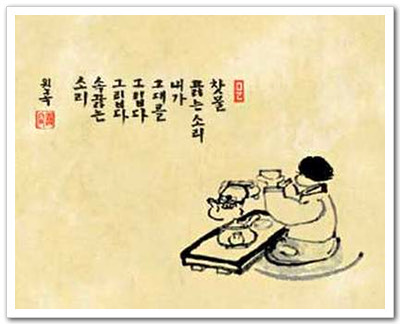 찻물
끓는소리
내가
그대를
그립다
그립다
속끓는
소리